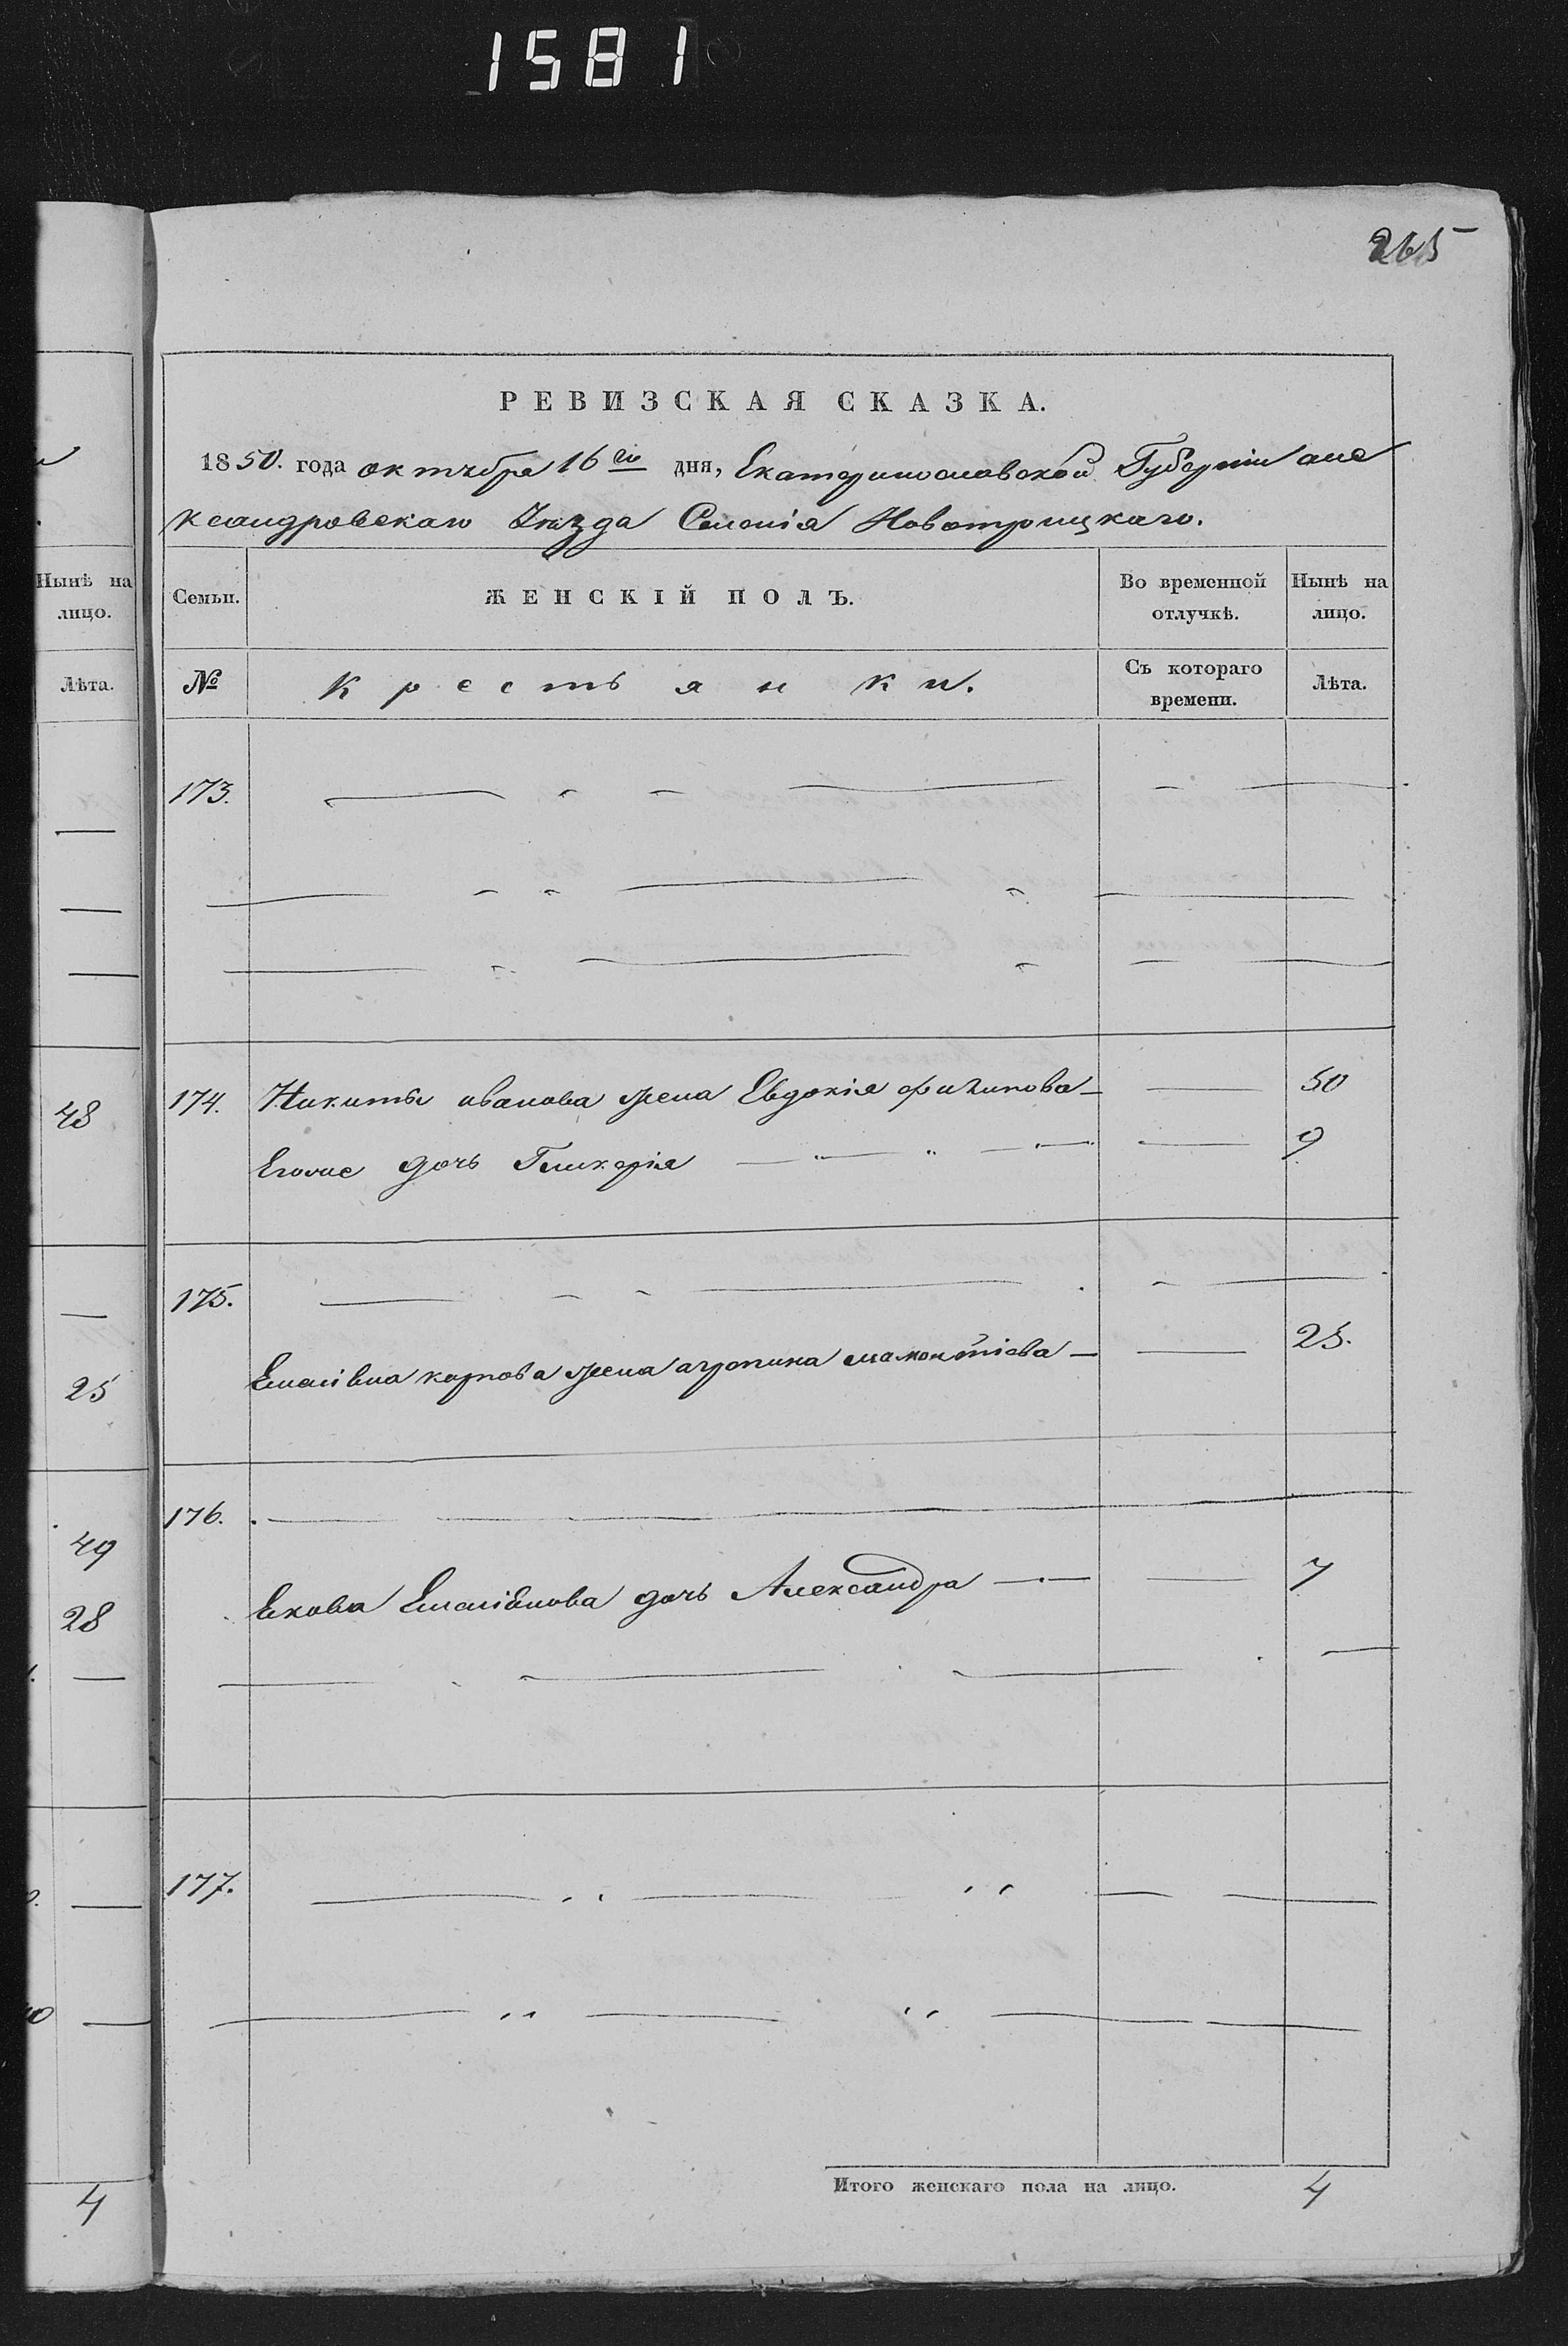 1581
265
РЕВИЗСКАЯ СКАЗКА.
1850. года октября 16го дня, Екатеринославской Губерніи але
ксандровскаго Уѣзда Селенія Новотроицкаго.
Нынѣ на лицо.
Лѣта.
48
25
49
28
4
Семьи. ЖЕНСКІЙ ПОЛЪ. Во временной отлучкѣ. Нынѣ на лицо.
№ Крестьянки. Съ котораго времени. Лѣта.
173.
174. Никиты иванова жена Евдокія филипова — 50
Егоже дочь Гликерія 9
175.
Емеліяна карпова жена агрепина мамонтіева — 25.
176.
Екова Емеліянова дочь Александра 7
177.
Итого женскаго пола на лицо. 4